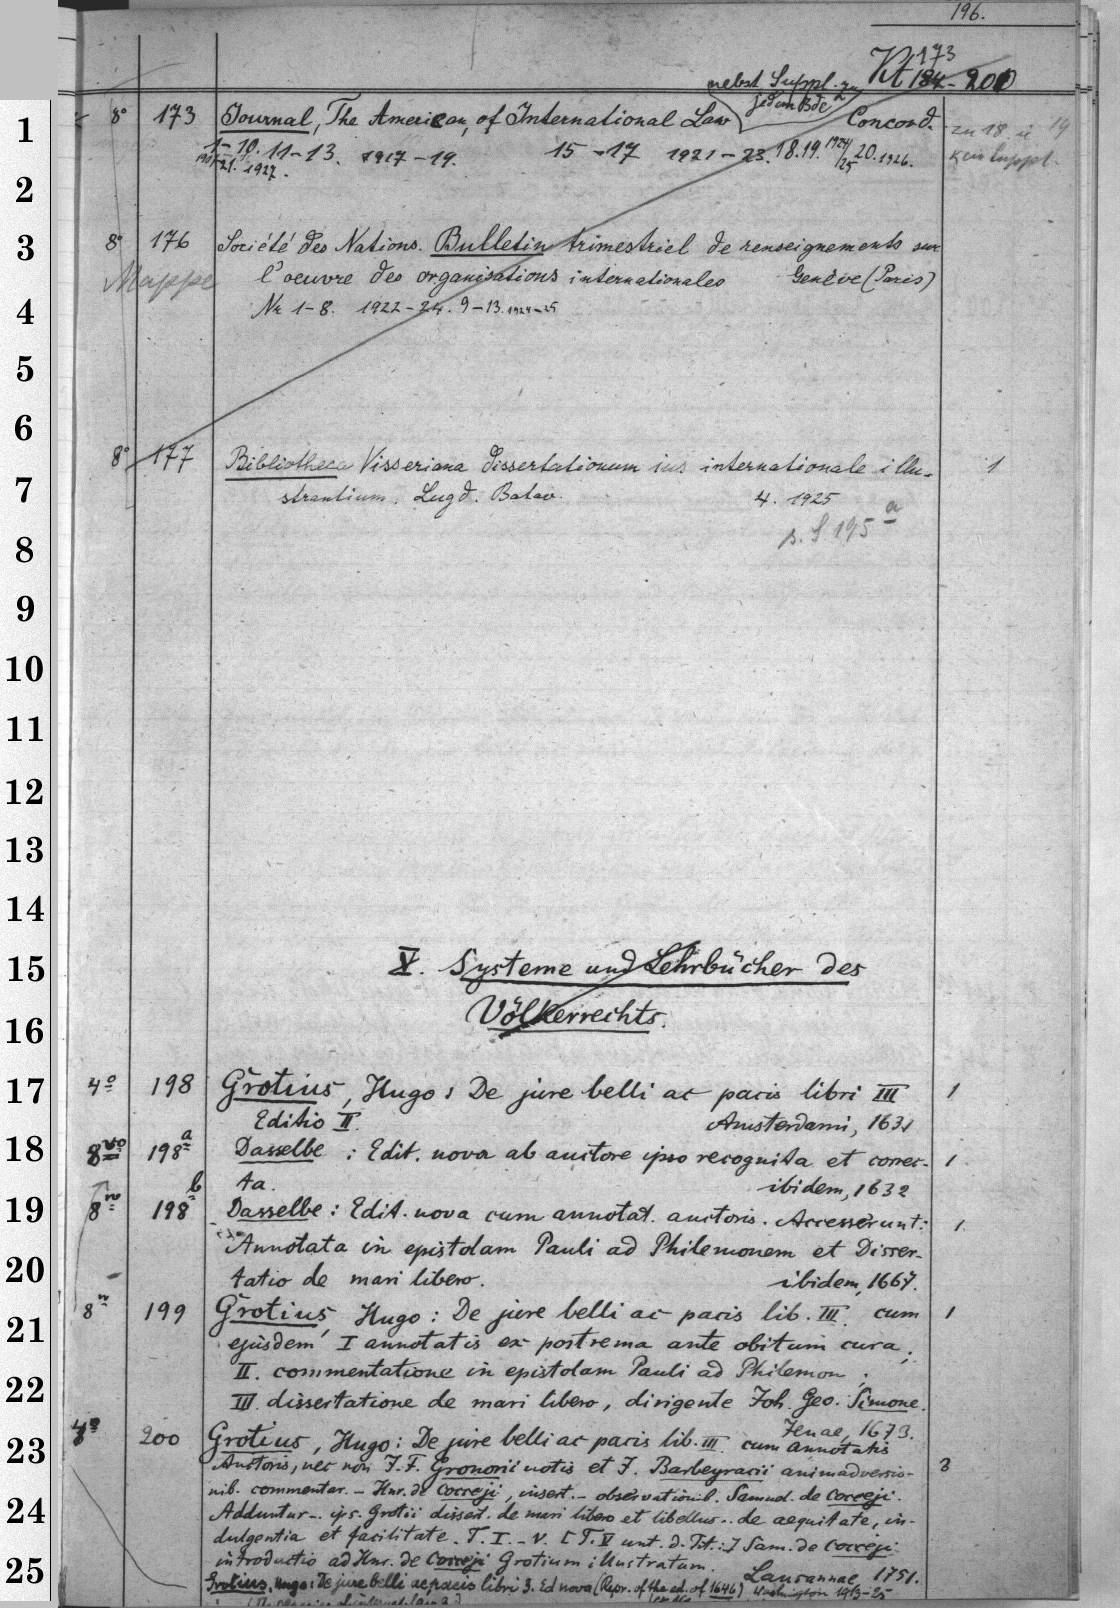 196.
Kt 173
184 - 200
nebst Suppl. zu
jedem Bde
1
8° 173 Journal, The American, of International Law Concord. zu 18. u 19
1-10. 11-13. 1917-19. 15-17 1921-23. 18.19. 1924/25 20. 1926. kein Suppl.
21. 1927.
2
3
8° 176 Société des Nations. Bulletin trimestriel de renseignements sur
Mappe l'oeuvre des organisations internationales Genève (Paris)
4
Nr 1-8. 1922-24. 9-13. 1924-25
5
6
8° 177 Bibliotheca Visseriana dissertationum ius internationale illu- 1
7
strantium. Lugd. Batav. 4. 1925
s. S 195 a
8
9
10
11
12
13
14
15
V. Systeme und Lehrbücher des
16
Völkerrechts.
17
4° 198 Grotius, Hugo: De jure belli ac pacis libri III 1
Editio II. Amsterdami, 1631
18
8vo 198a Dasselbe: Edit. nova ab auctore ipso recognita et correc- 1
ta. ibidem, 1632
19
8° 198b Dasselbe: Edit. nova cum annotat. auctoris. Accesserunt: 1
Annotata in epistolam Pauli ad Philemonem et Disser-
20
tatio de mari libero. ibidem, 1667.
8° 199 Grotius, Hugo: De jure belli ac pacis lib. III. cum 1
21
ejusdem I annotatis ex postrema ante obitum cura;
II. commentatione in epistolam Pauli ad Philemon;
22
III dissertatione de mari libero, dirigente Joh. Geo. Simone.
Jenae, 1673.
23
4° 200 Grotius, Hugo: De jure belli ac pacis lib. III cum annotatis
Auctoris, nec non J. F. Gronovii notis et J. Barbeyracii animadversio- 3
nib. commentar. - Hnr. de Cocceji, insert. - observationib. Samuel. de Cocceji.
24
Adduntur - ips. Grotii dissert. de mari libero et libellus - de aequitate, in-
dulgentia et facilitate. T. I. - V. [T. V unt. d. Tit.:] Sam. de Cocceji
introductio ad Hnr. de Cocceji Grotium illustratum. Lausannae 1751.
25
Grotius, Hugo: De jure belli ac pacis libri 3. Ed nova (Repr. of the ed. of 1646) Washington 1913-25